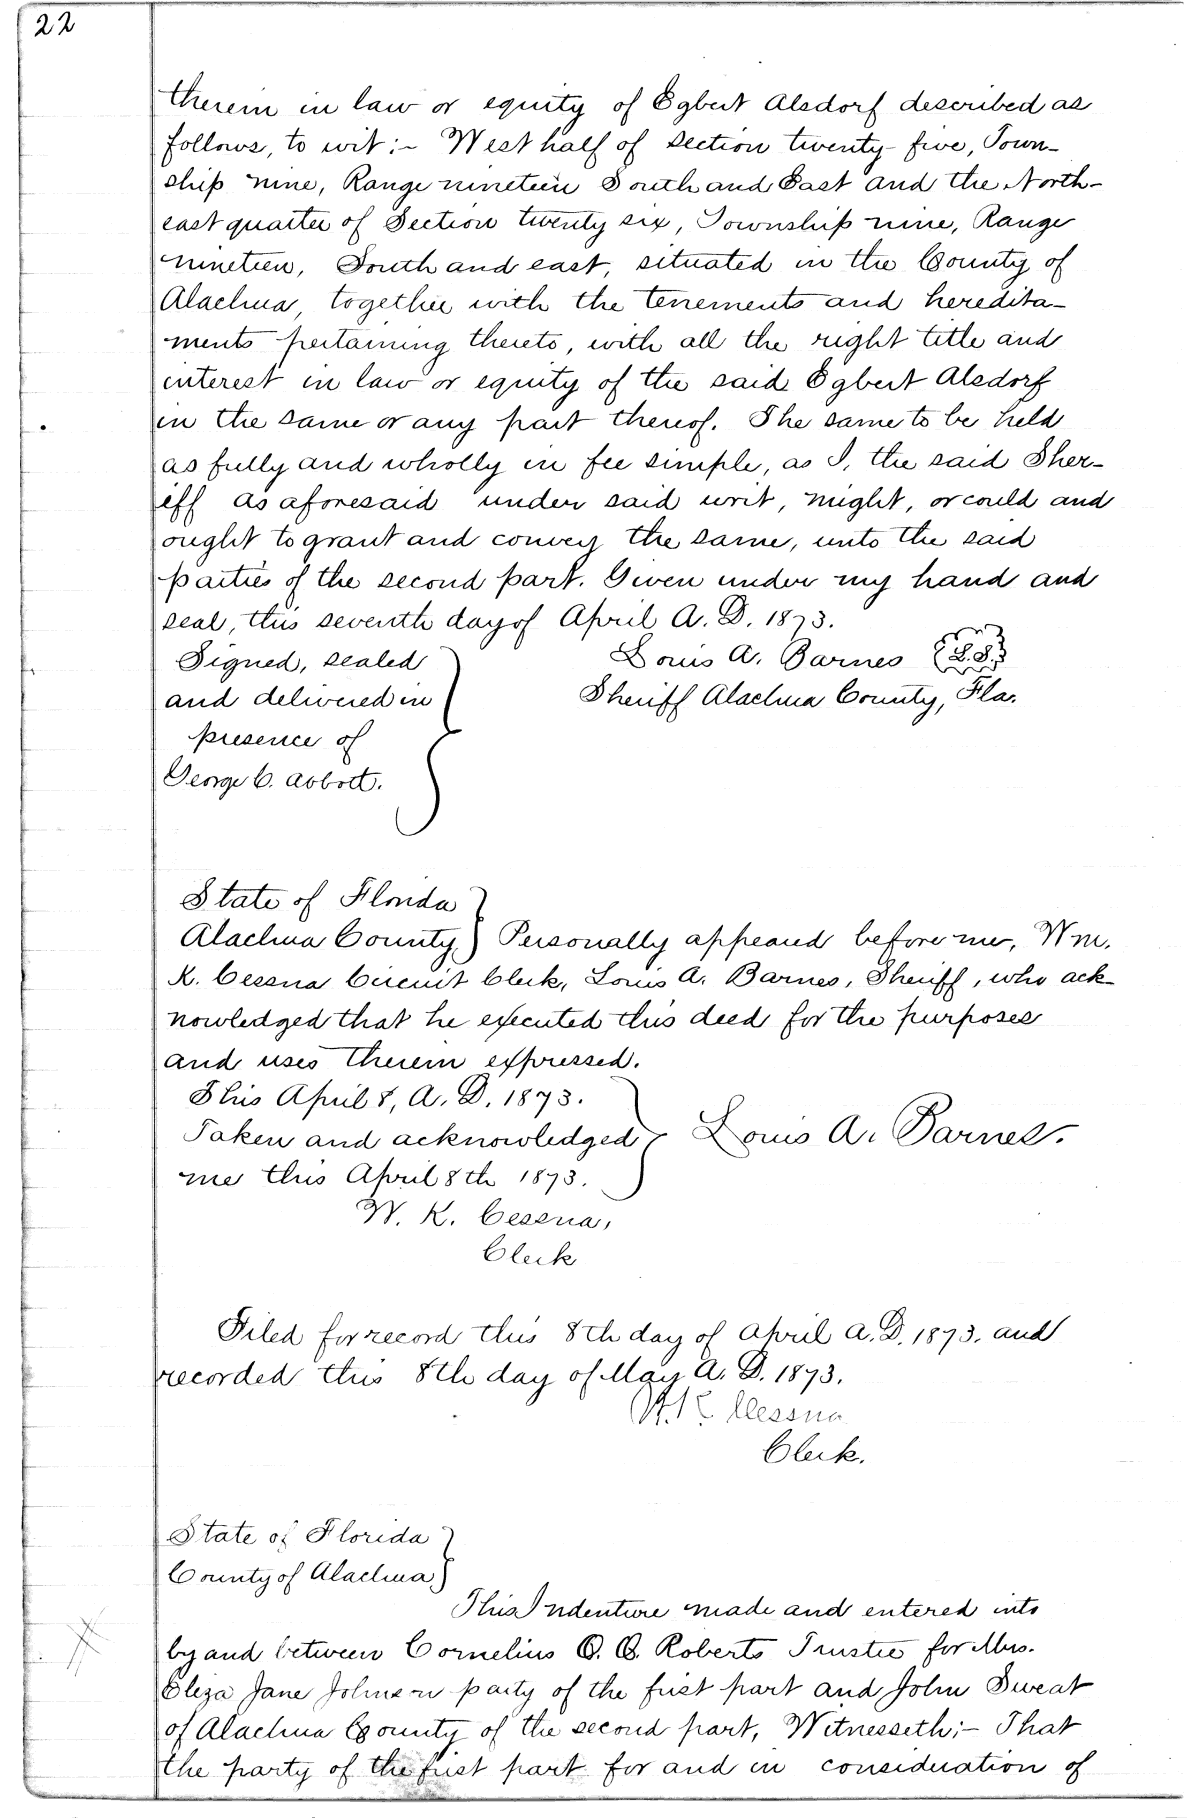 22
therein in law or equity of Egbert Alsdorf described as
follows, to wit:- West half of section twenty five, Town-
ship nine, Range nineteen South and East and the North-
east quarter of Section twenty six, Township nine, Range
nineteen, South and east, situated in the County of
Alachua, together with the tenements and heredita-
ments pertaining thereto, with all the right title and
interest in law or equity of the said Egbert Alsdorf
in the same or any part thereof. The same to be held
as fully and wholly in fee simple, as I, the said Sher-
iff as aforesaid under said writ, might, or could and
ought to grant and convey the same, unto the said
parties of the second part. Given under my hand and
seal, this seventh day of April A. D. 1873.
Signed, sealed Louis A. Barnes {L.S.}
and delivered in Sheriff Alachua County, Fla.
presence of
George C. Abbott.
State of Florida
Alachua County } Personally appeared before me, Wm.
K. Cessna Circuit Clerk, Louis A. Barnes, Sheriff, who ack-
nowledged that he executed this deed for the purposes
and uses therein expressed.
This April 8, A. D. 1873.
Taken and acknowledged } Louis A. Barnes.
me this April 8th 1873.
W. K. Cessna,
Clerk
Filed for record this 8th day of April A.D. 1873. and
recorded this 8th day of May A. D. 1873.
W. K. Cessna
Clerk.
State of Florida }
County of Alachua }
This Indenture made and entered into
by and between Cornelius O. O. Roberts Trustee for Mrs.
Eliza Jane Johnson party of the first part and John Sweat
of Alachua County of the second part, Witnesseth:- That
the party of the first part for and in consideration of